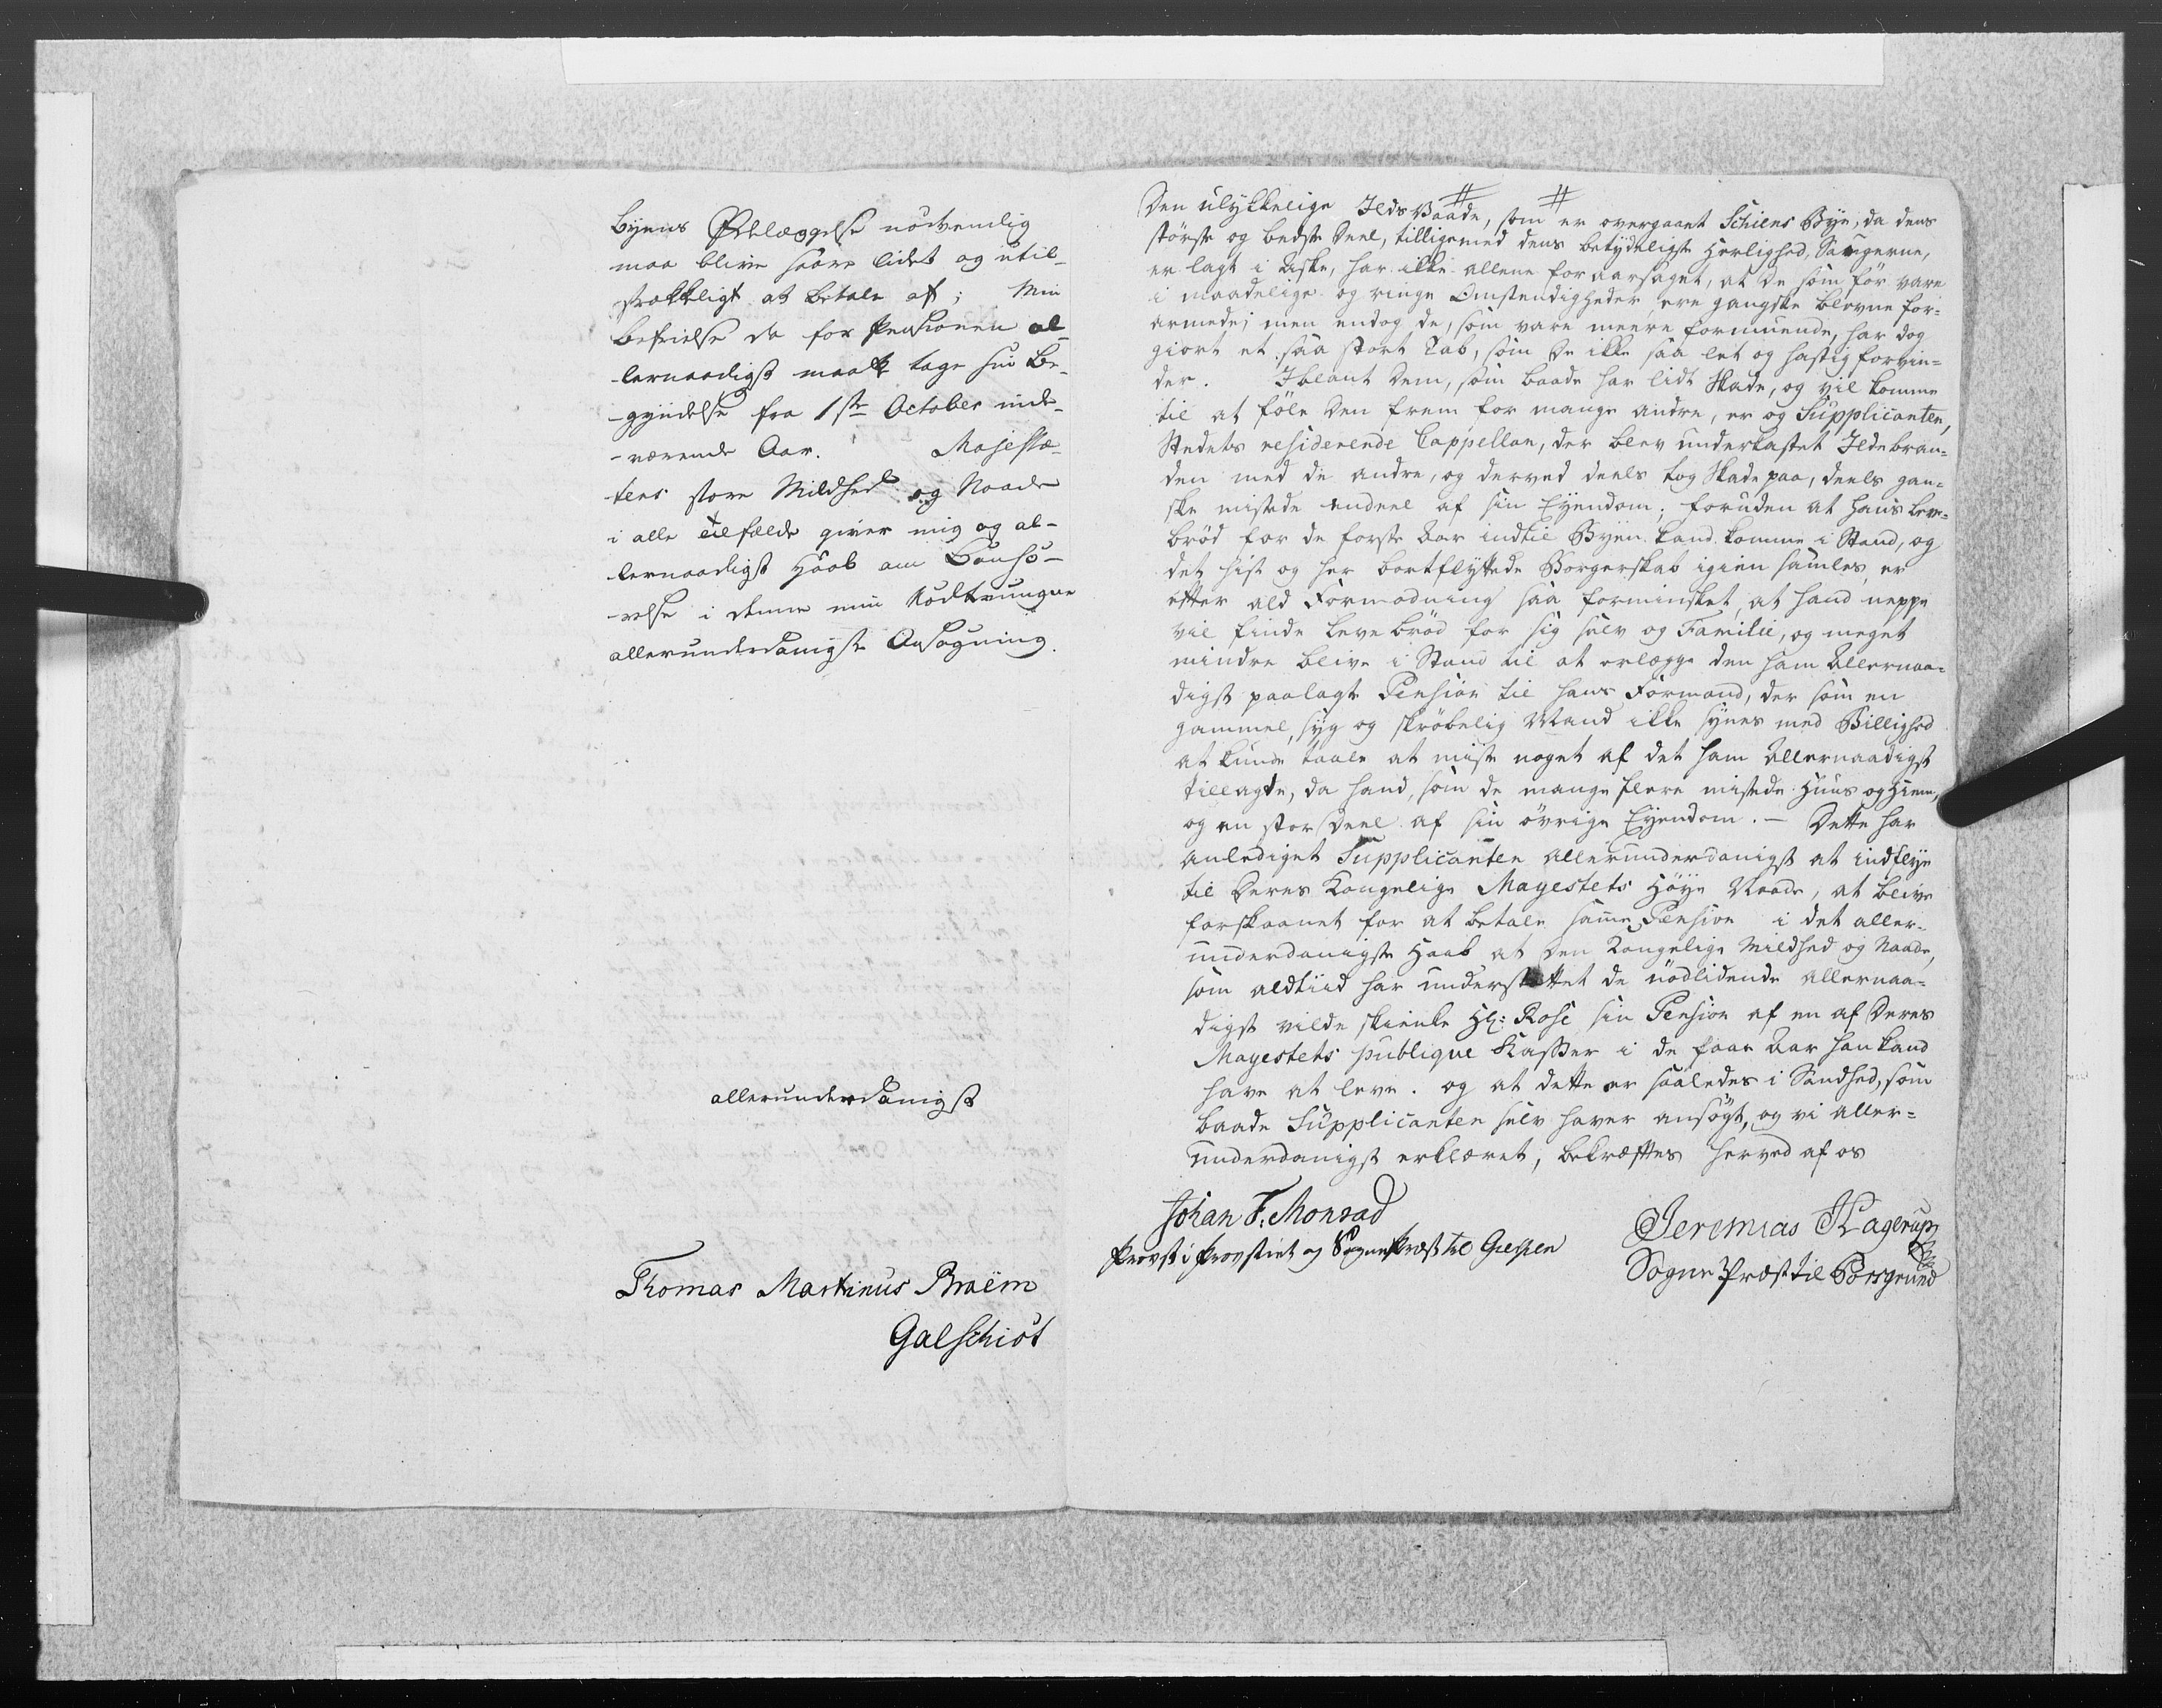 Byens Ødelæggelse nødvendig
maa blive saare lidet og util-
strækkeligt at betale af; Min
befrielse da for Pensionen al-
lernaadigst maatte tage sin Be-
gyndelse fra 1ste October inde-
-værende Aar. Majestæ-
tens store Mildhed og Naade
i alle tilfælde giver mig og al-
lernaadigst Haab om Bønhø-
relse i denne min Nødtrungne
allerunderdanigste Ansøgning.
allerunderdanigst
Thomas Martinus Braëm
Galschiöt
Den ulykkelige Ilds Vaade, som er overgaaet Schiens Bye, da dens
største og bedste Deel, tilligemed dens betydeligste Herlighed, Saugerne,
er lagt i Aske, har ikke allene foraarsaget, at De som før vare
i maadelige og ringe Omstendigheder, ere gangske blevne for-
armede; men endog de, som vare meere formuende, har dog
giort et saa stort Tab, som De ikke saa let og hastig forvin-
der. Iblant Dem, som baade har lidt Skade, og vil komme
til at føle Den frem for mange andre, er og Supplicanten,
Stedets residerende Cappellan, der blev underkastet Ildebran-
den med de andre, og derved deels tog Skade paa, deels gan-
ske mistede endeel af sin Eyendom; foruden at hans Leve-
brød for de første Aar indtil Byen kand komme i Stand, og
det hist og her bortflyttede Borgerskab igien samles, er
efter ald Formodning saa forminsket, at hand neppe
vil finde Levebrød for sig selv og Familie, og meget
mindre blive i Stand til at erlægge den ham Allernaa-
digst paalagte Pension til hans Formand, der som en
gammel, syg og skrøbelig Mand ikke synes med Billighed
at kunde taale at miste noget af det ham Allernaadigst
tillagte, da hand, som de mange flere mistede Huus og Hiem,
og en stor Deel af sin øvrige Eyendom. - Dette har
anlediget Supplicanten allerunderdanigst at indflye
til Deres Kongelige Mayestets Høye Naade, at blive
forskaanet for at betale samme Pension i det aller-
underdanigste Haab at Den Kongelige Mildhed og Naade,
som aldtiid har understøttet de nødlidende allernaa-
digst vilde skienke Hr: Rose sin Pension af en af Deres
Mayestets publique Kasser i de faae Aar han kand
have at leve. og at dette er saaledes i Sandhed, som
baade Supplicanten selv haver ansøgt, og vi aller-
underdanigst erklæret, bekræftes herved af os
Johan F. Monrad
Provst i Provstiet og SognePræst til Gierpen
Jeremias Hagerup
Sogne Præst til Porsgrund